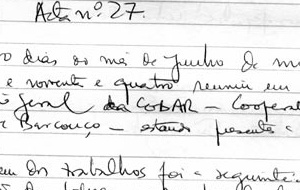 Acta nº 27.
o dias do mês de Junho de m
e noventa e quatro reuniu em
geral da COBAR – Cooperat
Barcouço – estando presente
em dos trabalhos foi a seguinte: